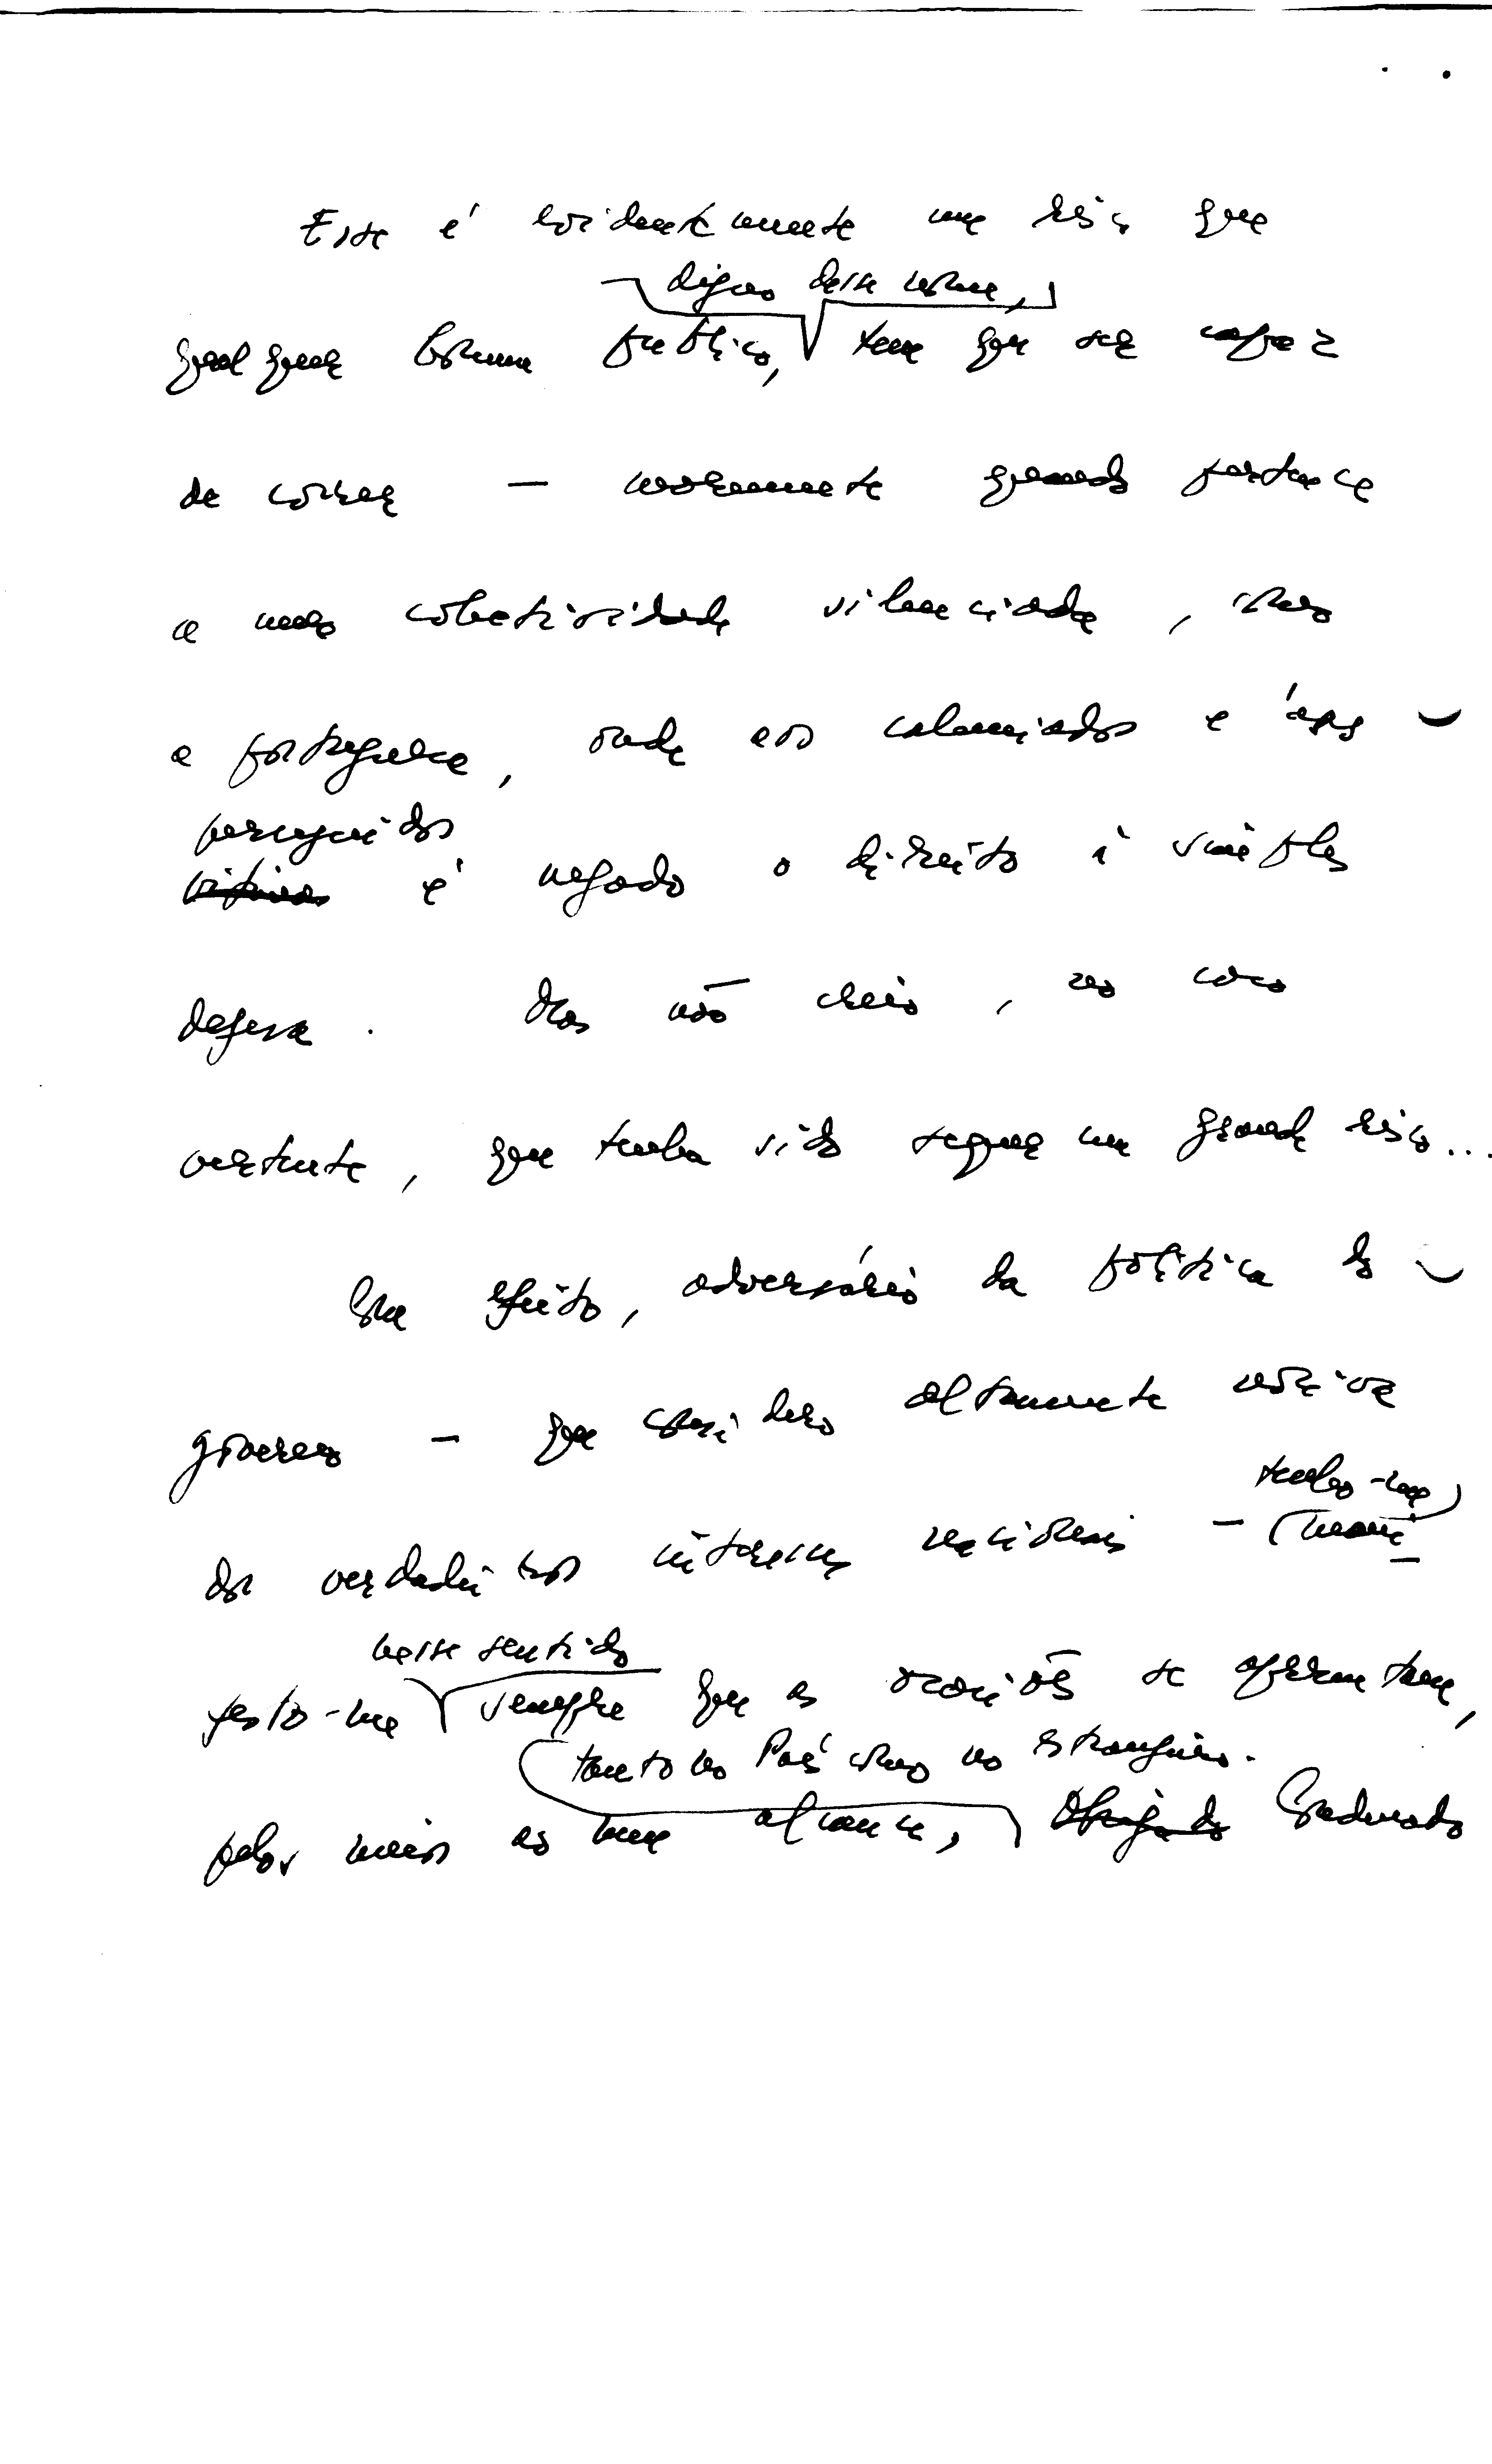 Esse é evidentemente um risco que
digno desse nome,
qualquer homem público, tem que ser capaz
de correr — normamente quando pertence
a uma colectividade silenciada, como
a portuguesa, onde aos calumniados e aos
perseguidos
vítimas é negado o direito à simples
defesa. Mas não creio, no caso
vertente, que tenha sido sequer um grande risco...
Em efeito, adversário da política do
governo — que considero altamente nociva
tenho-me
dos verdadeiros interesses nacionais — mani-
nesse sentido
festo-me sempre que as ocasiões se apresentam,
tanto no País como no estrangeiro.
pelos meios ao meu alcance, Obrigado